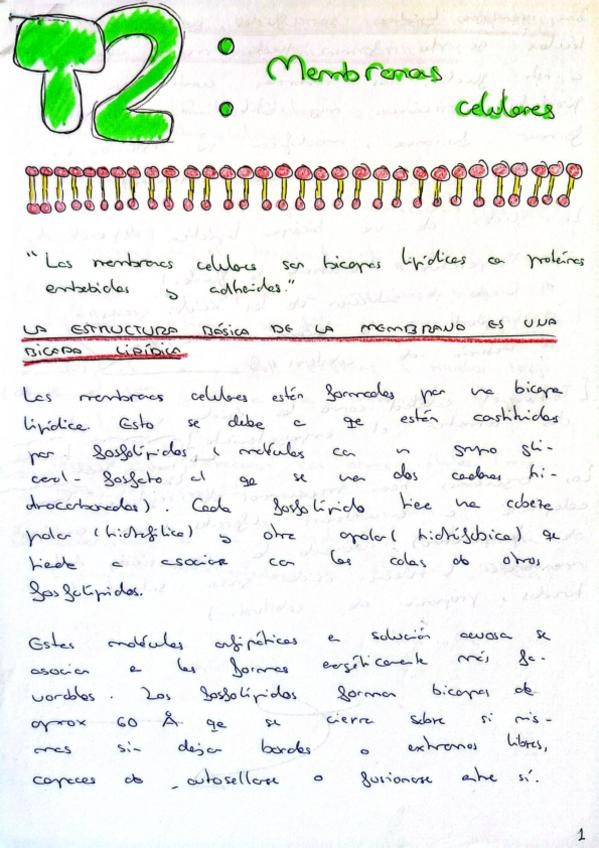 T2: Membranas
celulares
"Las membranas celulares son bicapas lipídicas con proteínas
embebidas y adheridas."
LA ESTRUCTURA BÁSICA DE LA MEMBRANA ES UNA
BICAPA LIPÍDICA
Las membranas celulares están formadas por una bicapa
lipídica. Esto se debe a que están constituidas
por fosfolípidos, (moléculas con un grupo gli-
cerol-fosfato al que se unen dos cadenas hi-
drocarbonadas). Cada fosfolípido tiene una cabeza
polar (hidrofílica) y otra apolar (hidrófobica) que
tiende a asociarse con las colas de otros
fosfolípidos.
Estas moléculas anfipáticas en solución acuosa se
asocian en las formas energéticamente más fa-
vorables. Los fosfolípidos forman bicapas de
aprox 60 Å que se cierran sobre si mis-
mas sin dejar bordes o extremos libres,
capaces de autosellarse o fusionarse entre sí.
1